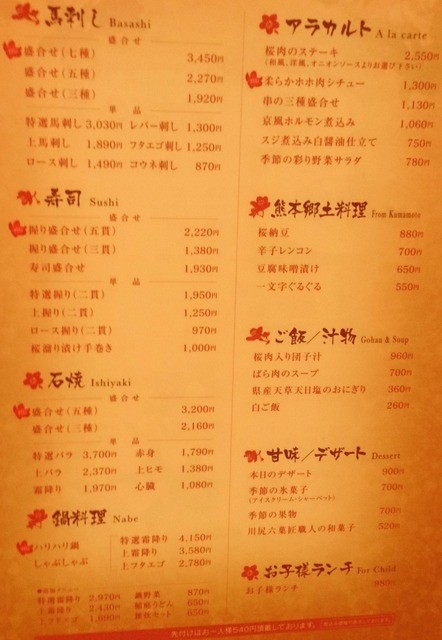 馬刺し Basashi
盛合せ
盛合せ(七種) 3,450円
盛合せ(五種) 2,270円
盛合せ(三種) 1,920円
単品
特選馬刺し 3,030円 レバー刺し 1,300円
上馬刺し 1,890円 フタエゴ刺し 1,250円
ロース刺し 1,490円 コウネ刺し 870円
寿司 Sushi
盛合せ
握り盛合せ(五貫) 2,220円
握り盛合せ(三貫) 1,380円
寿司盛合せ 1,930円
単品
特選握り(二貫) 1,950円
上握り(二貫) 1,250円
ロース握り(二貫) 970円
桜溜り漬け手巻き 1,000円
石焼 Ishiyaki
盛合せ
盛合せ(五種) 3,200円
盛合せ(三種) 2,160円
単品
特選バラ 3,700円 赤身 1,790円
上バラ 2,370円 上ヒモ 1,380円
霜降り 1,970円 心臓 1,080円
鍋料理 Nabe
ハリハリ鍋
しゃぶしゃぶ
特選霜降り 4,150円
上霜降り 3,580円
上フタエゴ 2,780円
特選霜降り 2,870円 鍋野菜 870円
上霜降り 2,430円 稲庭うどん 650円
上フタエゴ 1,690円 雑炊セット 650円
アラカルト A la carte
桜肉のステーキ 2,550円
(和風、洋風、オニオンソースよりお選び下さい)
柔らかホホ肉シチュー 1,300円
串の三種盛合せ 1,130円
京風ホルモン煮込み 1,060円
スジ煮込み白醤油仕立て 750円
季節の彩り野菜サラダ 780円
熊本郷土料理 From Kumamoto
桜納豆 880円
辛子レンコン 700円
豆腐味噌漬け 650円
一文字ぐるぐる 550円
ご飯/汁物 Gohan & Soup
桜肉入り団子汁 960円
ばら肉のスープ 700円
県産天草天日塩のおにぎり 360円
白ご飯 260円
甘味/デザート Dessert
本日のデザート 900円
季節の氷菓子 700円
(アイスクリーム・シャーベット)
季節の果物 700円
川尻六菓匠職人の和菓子 520円
お子様ランチ For Child
お子様ランチ 980円
先付けはお一人様540円頂戴しております。